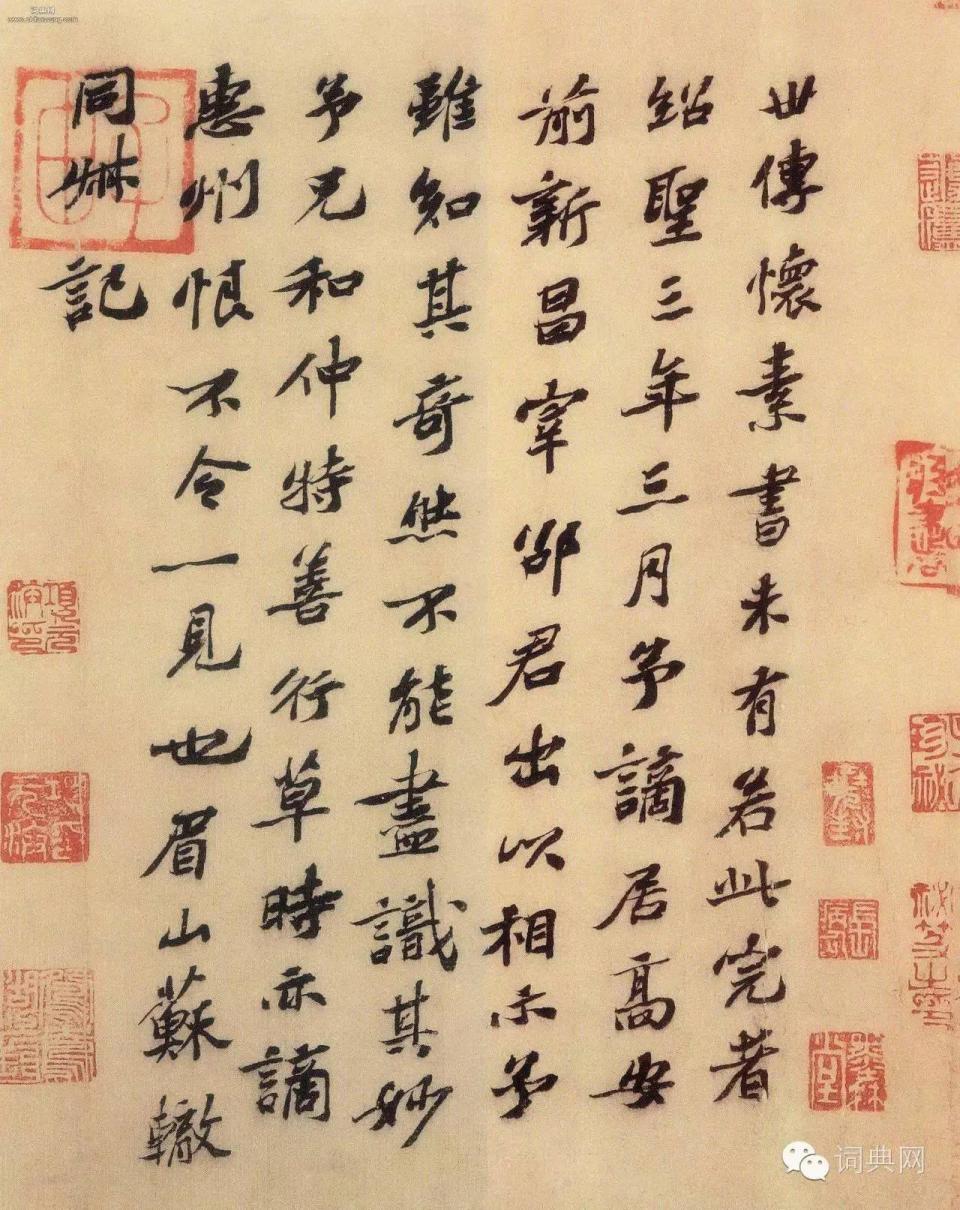 世傳懷素書未有若此完者
紹聖三年三月予謫居高安
前新昌宰邵君出以相示予
雖知其奇然不能盡識其妙
予兄和仲特善行草時亦謫
惠州恨不令一見也眉山蘇轍
同叔記
词典网
词典网